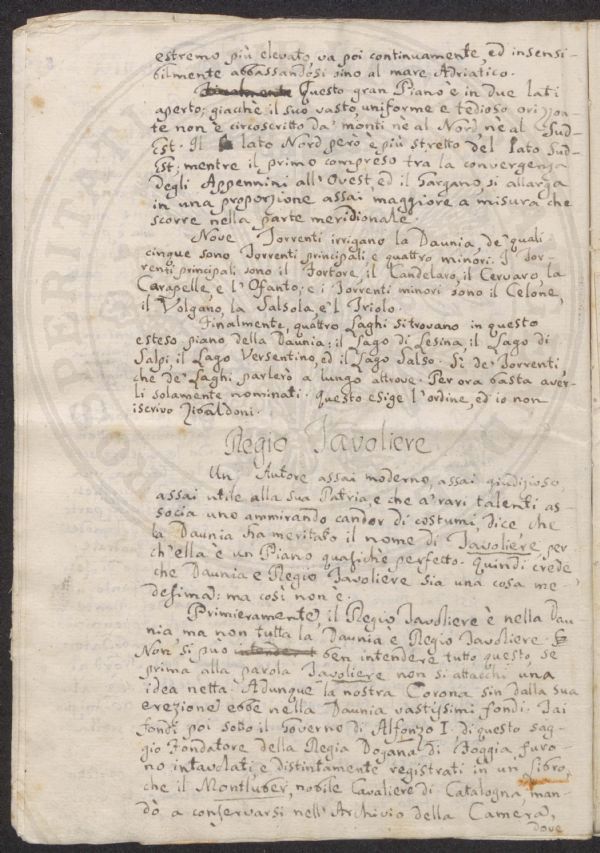 estremo più elevato, va poi continuamente, ed insensi-
bilmente abbassandosi sino al mare Adriatico.
Finalmente Questo gran Piano è in due lati
aperto; giacchè il suo vasto, uniforme e tedioso orizzon-
te non è circoscritto da' monti nè al Nord, nè al Sud-
Est. Il lato Nord però è più stretto del lato Sud-
Est; mentre il primo compreso tra la convergenza
degli Appennini all'Ovest, ed il Gargano, si allarga
in una proporzione assai maggiore a misura che
scorre nella parte meridionale.
Nove Torrenti irrigano la Daunia, de' quali
cinque sono Torrenti principali e quattro minori. I Tor-
renti principali sono il Fortore, il Candelaro, il Cervaro, la
Carapelle, e l'Ofanto; e i Torrenti minori sono il Celone,
il Volgano, la Salsola, e 'l Triolo.
Finalmente, quattro Laghi si trovano in questo
esteso piano della Daunia; il Lago di Lesina, il Lago di
Salpi, il Lago Versentino, ed il Lago Salso. Sì de' Torrenti,
che de' Laghi parlerò a lungo altrove. Per ora basta aver-
li solamente nominati. Questo esige l'ordine, ed io non
iscrivo Zibaldoni.
Regio Tavoliere
Un Autore assai moderno, assai giudizioso,
assai utile alla sua Patria, e che a' rari talenti as-
socia uno ammirando candor di costumi, dice che
la Daunia ha meritato il nome di Tavoliere per
ch'ella è un Piano quasichè perfetto. Quindi crede
che Daunia e Regio Tavoliere sia una cosa me-
desima: ma così non è.
Primieramente, il Regio Tavoliere è nella Dau
nia, ma non tutta la Daunia è Regio Tavoliere.
Non si può intender ben intendere tutto questo, se
prima alla parola Tavoliere non si attacchi una
idea netta. Adunque la nostra Corona sin dalla sua
erezione ebbe nella Daunia vastissimi fondi. Tai
fondi poi sotto il Governo di Alfonzo I, di questo sag-
gio Fondatore della Regia Dogana di Foggia, furo-
no intavolati e distintamente registrati in un Libro,
che il Montluber, nobile Cavaliere di Catalogna, man-
dò a conservarsi nell'Archivio della Camera,
dove